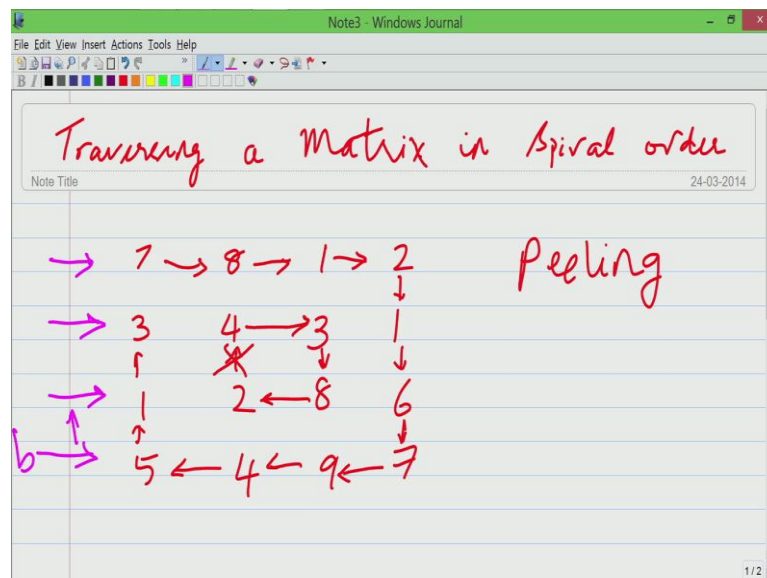 Note3 - Windows Journal
File Edit View Insert Actions Tools Help
B I
Traversing a Matrix in Spiral order
Note Title
24-03-2014
→ 7 → 8 → 1 → 2 Peeling
→ 3 4 → 3 1
→ 1 2 ← 8 6
b → 5 ← 4 ← 9 ← 7
1 / 2